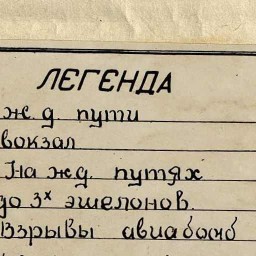 ЛЕГЕНДА
ж.д. пути
вокзал
На ж.д. путях
до 3х эшелонов.
Взрывы авиабомб